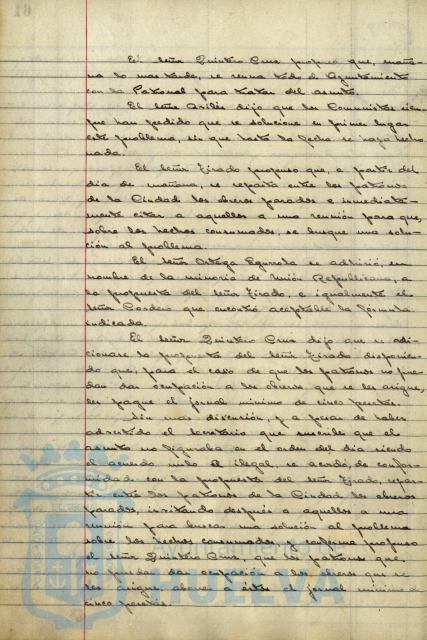 El señor Quintero Cruz propuso que, maña-
na lo mas tarde, se reuna todo el Ayuntamiento
con la Patronal para tratar del asunto.
El señor Avilés dijo que los Comunistas siem-
pre han pedido que se solucione en primer lugar
este problema, sin que hasta la fecha se haya hecho
nada.
El señor Tirado propuso que, a partir del
día de mañana, se reparta entre los patronos
de la Ciudad los obreros parados e inmediata-
mente citar a aquellos a una reunión para que,
sobre los hechos consumados, se busque una solu-
ción al problema.
El señor Ortega Egurrola se adhirió, en
nombre de la minoria de Unión Republicana, a
la propuesta del señor Tirado, e igualmente el
señor Cordero que encontró aceptable la fórmula
indicada.
El señor Quintero Cruz dijo que se adi-
cionara la propuesta del señor Tirado disponien-
do que, para el caso de que los patronos no pue-
dan dar ocupación a los obreros que se les asigne,
les pague el jornal mínimo de cinco pesetas.
Sin mas discusión, y a pesar de haber
advertido el Secretario que entiende que el
asunto no figuraba en el orden del dia siendo
el acuerdo nulo ó ilegal, se acordó, de confor-
midad con la propuesta del señor Tirado, repar-
tir entre los patronos de la Ciudad los obreros
parados, invitando después a aquellos a una
reunión para buscar una solución al problema
sobre los hechos consumados, y conforme propuso
el señor Quintero Cruz, que los patronos que
no puedan dar ocupación a los obreros que se
les asigne, abone a éstos el jornal mínimo de
cinco pesetas.
HUELVA